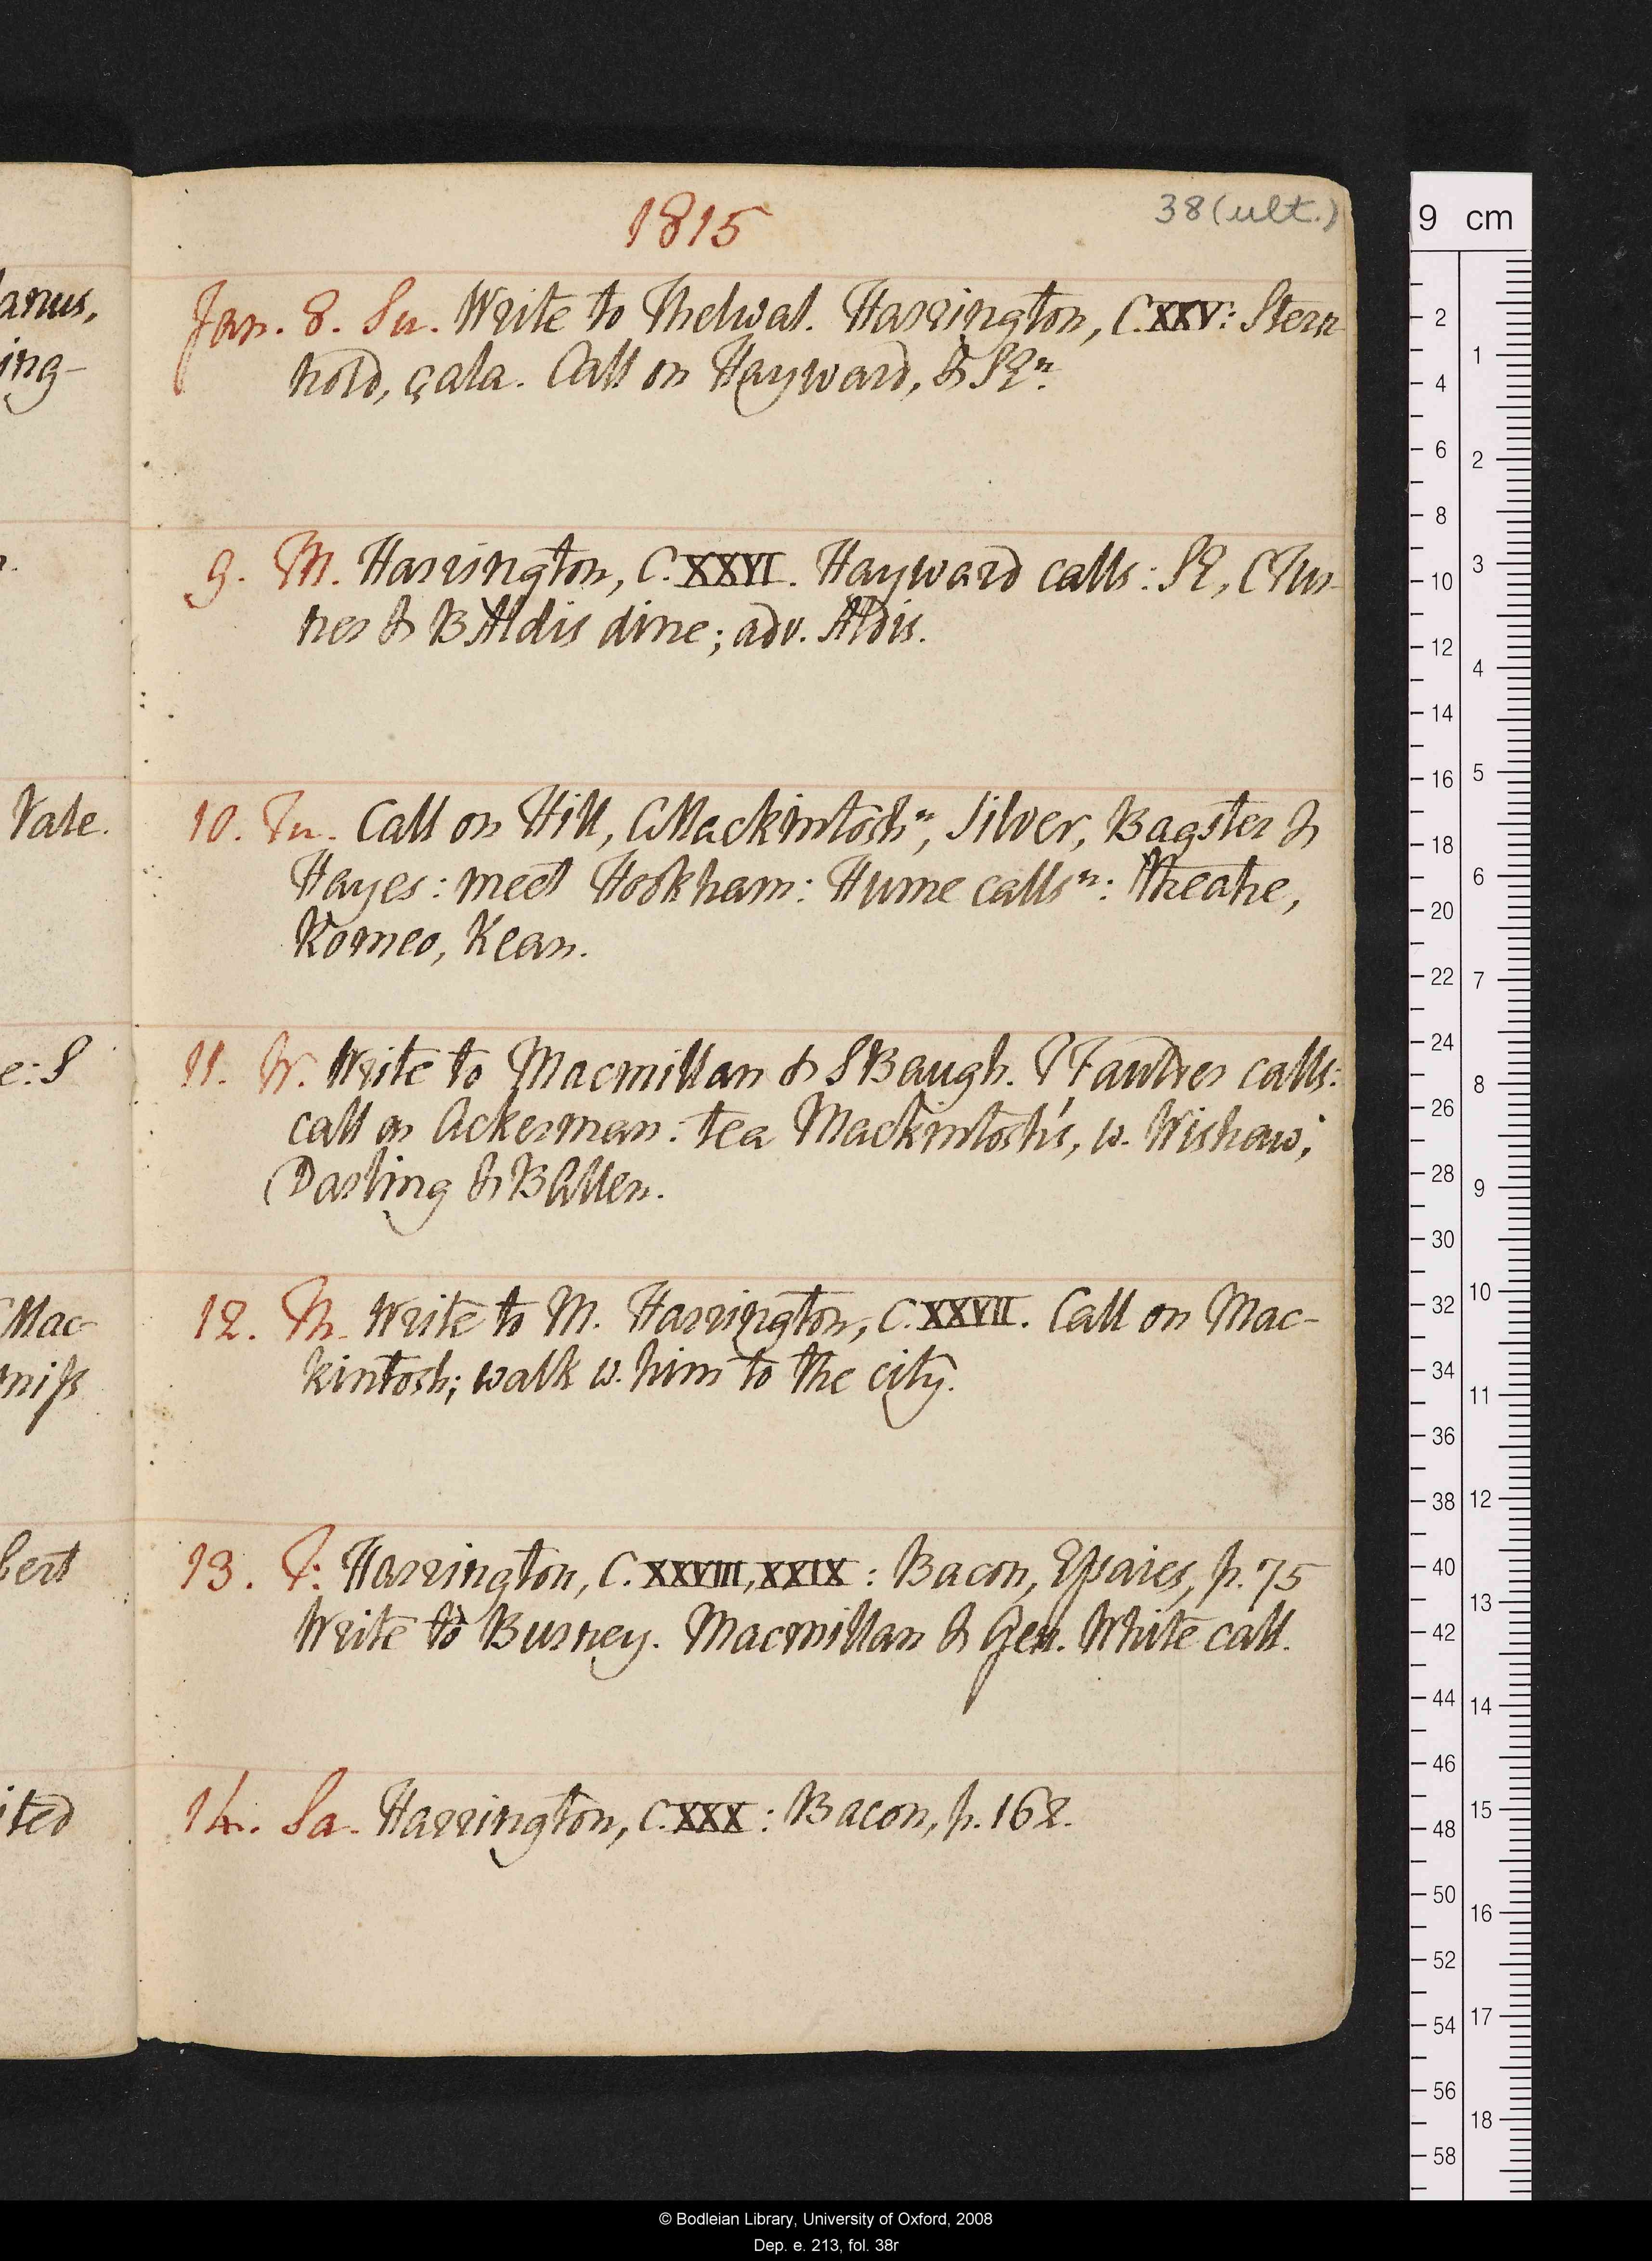 1815
38 (ult.)
Jan. 8. Su. Write to Thelwal. Harrington, C. XXV: Stern-
hold, çala. Call on Hayward, & SEⁿ.
9. M. Harrington, C. XXVI. Hayward calls: SE, CTur-
ner & B Aldis dine; adv. Aldis.
10. Tu. Call on Hill, C Mackintoshⁿ, Silver, Bagster &
Hayes: meet Hookham: Hume callsⁿ: Theatre,
Romeo, Kean.
11. W. Write to Macmillan & S Baugh. Fauntler calls:
call on Ackerman: tea Mackintosh's, w. Wishaw,
Darling & B Allen.
12. Th. Write to M. Harrington, C. XXVII. Call on Mac-
kintosh; walk w. him to the city.
13. F. Harrington, C. XXVIII, XXIX: Bacon, Essaies, p. 75
Write to Burney. Macmillan & Gen. White call.
14. Sa. Harrington, C. XXX: Bacon, p. 162.
anus,
ing-
Vale.
e: S
Mac-
niss
bert
ited
9 cm
2
4
6
8
10
12
14
16
18
20
22
24
26
28
30
32
34
36
38
40
42
44
46
48
50
52
54
56
58
1
2
3
4
5
6
7
8
9
10
11
12
13
14
15
16
17
18
© Bodleian Library, University of Oxford, 2008
Dep. e. 213, fol. 38r